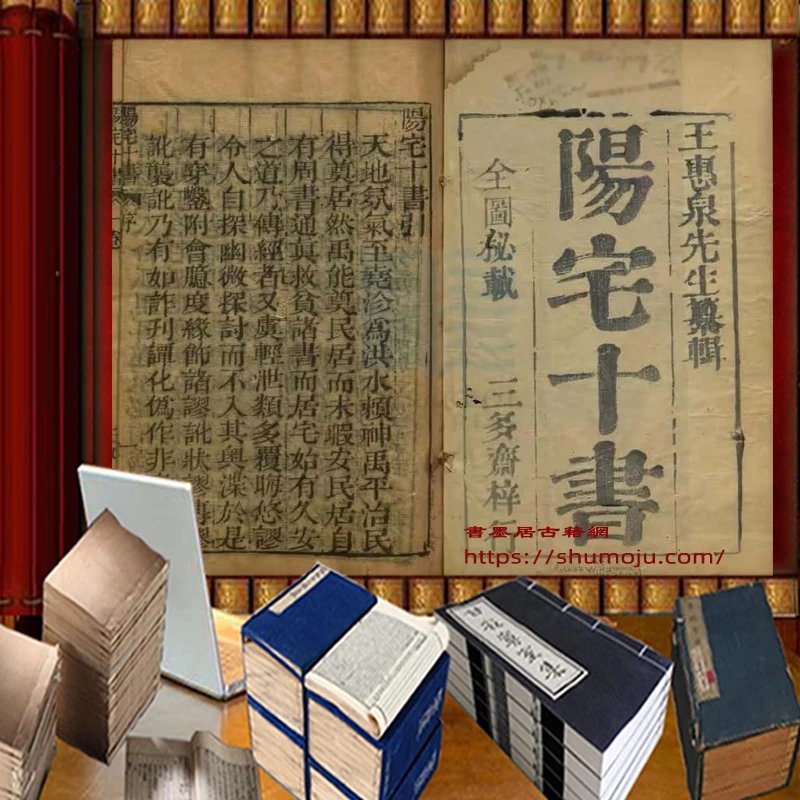 王惠泉先生纂輯
陽宅十書
全圖秘載 三多齋梓
陽宅十書引
天地氛氣至堯沴為洪水賴神禹平治民
得奠居然禹能奠民居而未暇安民居自
有周書通真救貧諸書而居宅始有久安
之道乃傳經者又虞輕泄類多覆晦悠謬
令人自探幽微探討而不入其奧渫於是
有穿鑿附會臆度緣飾諸謬訛狀謬
訛襲訛乃有如詐刊譚化偽作非
陽宅十書 序
書墨居古藉網
https://shumoju.com/